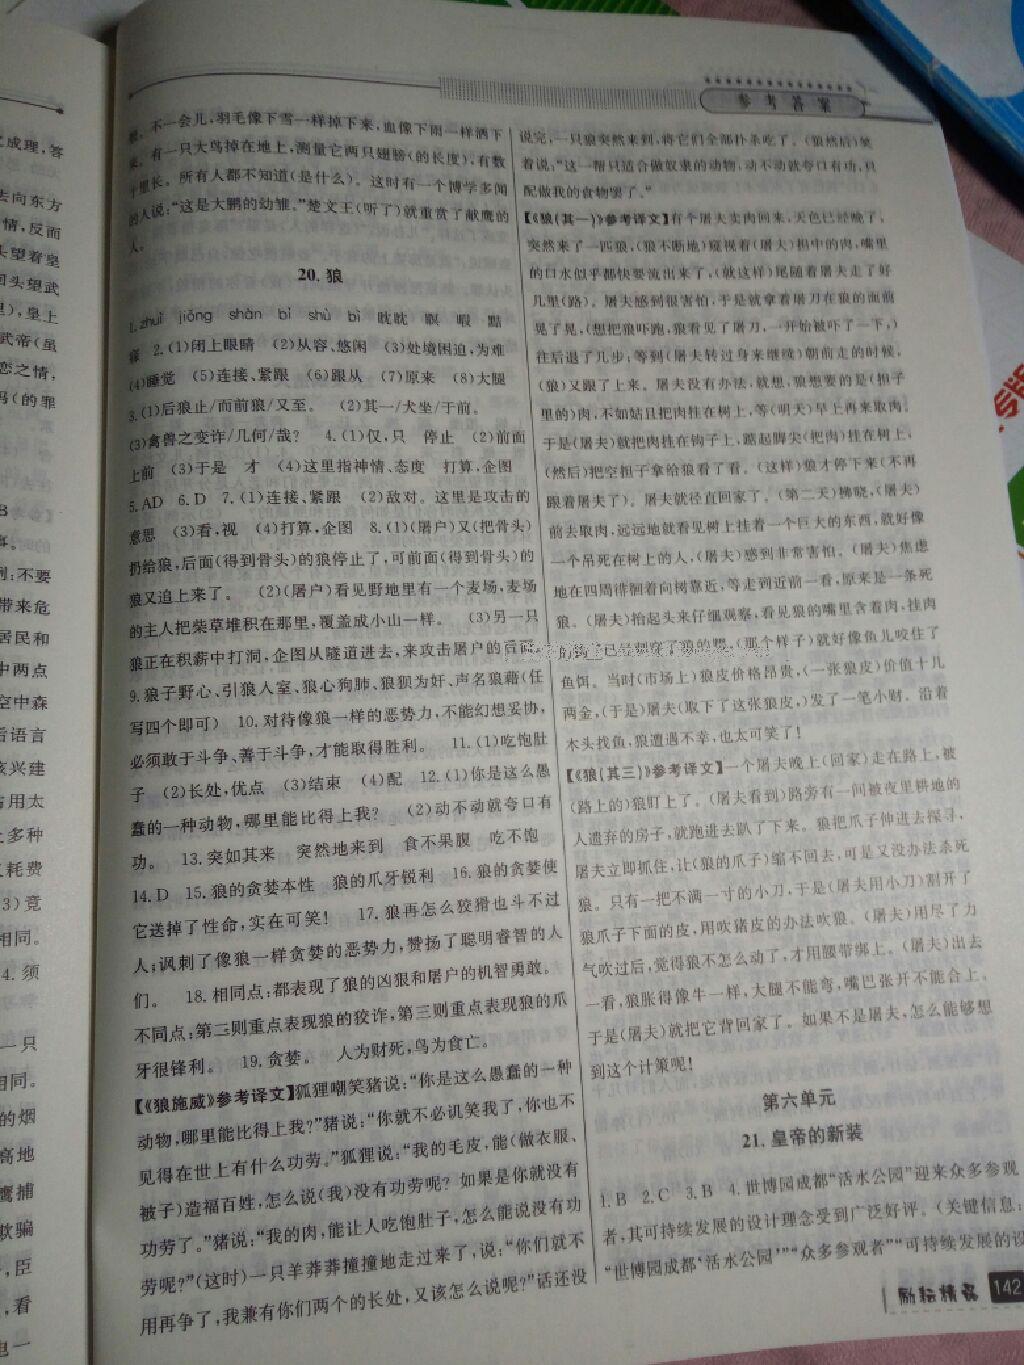 参考答案
成理,答
去向东方
情,反面
头望着皇
回头望武
),皇上
武帝(虽
恋之情,
玛(的罪
B
事。
例:不要
带来危
居民和
中两点
空中森
后语言
该兴建
与用太
上多种
耗费
3)竟
相同。
4. 须
一只
相同。
的烟
高地
鹰捕
欺骗
,臣
,看
也一
,不一会儿,羽毛像下雪一样掉下来,血像下雨一样洒下
来。有一只大鸟掉在地上,测量它两只翅膀(的长度),有数
十里长。所有人都不知道(是什么)。这时有一个博学多闻
的人说:“这是大鹏的幼雏。”楚文王(听了)就重赏了献鹰的
人。
20. 狼
1. zhuì jiǒng shàn bì shù bì 眈眈 瞑 暇 黠
寐 2. (1)闭上眼睛 (2)从容、悠闲 (3)处境困迫,为难
(4)睡觉 (5)连接、紧跟 (6)跟从 (7)原来 (8)大腿
3. (1)后狼止/而前狼/又至。 (2)其一/犬坐/于前。
(3)禽兽之变诈/几何/哉? 4. (1)仅,只 停止 (2)前面
上前 (3)于是 才 (4)这里指神情、态度 打算,企图
5. AD 6. D 7. (1)连接、紧跟 (2)敌对。这里是攻击的
意思 (3)看,视 (4)打算,企图 8. (1)(屠户)又(把骨头)
扔给狼,后面(得到骨头)的狼停止了,可前面(得到骨头)的
狼又追上来了。 (2)(屠户)看见野地里有一个麦场,麦场
的主人把柴草堆积在那里,覆盖成小山一样。 (3)另一只
狼正在积薪中打洞,企图从隧道进去,来攻击屠户的后面。
9. 狼子野心、引狼入室、狼心狗肺、狼狈为奸、声名狼藉(任
写四个即可) 10. 对待像狼一样的恶势力,不能幻想妥协,
必须敢于斗争、善于斗争,才能取得胜利。 11. (1)吃饱肚
子 (2)长处,优点 (3)结束 (4)配 12. (1)你是这么愚
蠢的一种动物,哪里能比得上我? (2)动不动就夸口有
功。 13. 突如其来 突然地来到 食不果腹 吃不饱
14. D 15. 狼的贪婪本性 狼的爪牙锐利 16. 狼的贪婪使
它送掉了性命,实在可笑! 17. 狼再怎么狡猾也斗不过
人;讽刺了像狼一样贪婪的恶势力,赞扬了聪明睿智的人
们。 18. 相同点:都表现了狼的凶狠和屠户的机智勇敢。
不同点:第二则重点表现狼的狡诈,第三则重点表现狼的爪
牙很锋利。 19. 贪婪。 人为财死,鸟为食亡。
【《狼施威》参考译文】狐狸嘲笑猪说:“你是这么愚蠢的一种
动物,哪里能比得上我?”猪说:“你就不必讥笑我了,你也不
见得在世上有什么功劳。”狐狸说:“我的毛皮,能(做衣服、
被子)造福百姓,怎么说(我)没有功劳呢? 如果是你就没有
功劳了。”猪说:“我的肉,能让人吃饱肚子,怎么能说没有功
劳呢?”(这时)一只羊莽莽撞撞地走过来了,说:“你们就不
用再争了,我兼有你们两个的长处,又该怎么说呢?”话还没
说完,一只狼突然来到,将它们全部扑杀吃了。(狼然后)笑
着说:“这一帮只适合做奴隶的动物,动不动就夸口有功,只
配做我的食物罢了。”
【《狼(其一)》参考译文】有个屠夫卖肉回来,天色已经晚了。
突然来了一匹狼,(狼不断地)窥视着(屠夫)担中的肉,嘴里
的口水似乎都快要流出来了,(就这样)尾随着屠夫走了好
几里(路)。屠夫感到很害怕,于是就拿着屠刀在狼的面前
晃了晃,(想把狼吓跑,狼看见了屠刀,一开始被吓了一下,)
往后退了几步;等到(屠夫转过身来继续)朝前走的时候,
(狼)又跟了上来。屠夫没有办法,就想,狼想要的是(担子
里的)肉,不如姑且把肉挂在树上,等(明天)早上再来取肉。
于是(屠夫)就把肉挂在钩子上,踮起脚尖(把肉)挂在树上,
(然后)把空担子拿给狼看了看。(这样)狼才停下来(不再
跟着屠夫了)。屠夫就径直回家了。(第二天)拂晓,(屠夫)
前去取肉,远远地就看见树上挂着一个巨大的东西,就好像
一个吊死在树上的人,(屠夫)感到非常害怕。(屠夫)焦虑
地在四周徘徊着向树靠近,等走到近前一看,原来是一条死
狼。(屠夫)抬起头来仔细观察,看见狼的嘴里含着肉,挂肉
的钩子已经刺穿了狼的腭,(那个样子)就好像鱼儿咬住了
鱼饵。当时(市场上)狼皮价格昂贵,(一张狼皮)价值十几
两金,(于是)屠夫(取下了这张狼皮,)发了一笔小财。沿着
木头找鱼,狼遭遇不幸,也太可笑了!
【《狼(其三)》参考译文】一个屠夫晚上(回家)走在路上,被
(路上的)狼盯上了。(屠夫看到)路旁有一间被夜里耕地的
人遗弃的房子,就跑进去趴了下来。狼把爪子伸进去探寻,
屠夫立即抓住,让(狼的爪子)缩不回去,可是又没办法杀死
狼。只有一把不满一寸的小刀,于是(屠夫用小刀)割开了
狼爪子下面的皮,用吹猪皮的办法吹狼。(屠夫)用尽了力
气吹过后,觉得狼不怎么动了,才用腰带绑上。(屠夫)出去
一看,狼胀得像牛一样,大腿不能弯,嘴巴张开不能合上。
于是(屠夫)就把它背回家了。如果不是屠夫,怎么能够想
到这个计策呢!
第六单元
21. 皇帝的新装
1. B 2. C 3. B 4. 世博园成都“活水公园”迎来众多参观
者,其可持续发展的设计理念受到广泛好评。(关键信息:
“世博园成都‘活水公园’”“众多参观者”“可持续发展的设
励耘精品 142